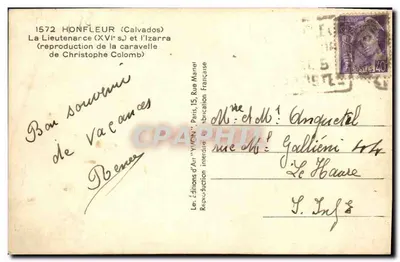 1572 HONFLEUR (Calvados)
La Lieutenance (XVIe s.) et l'Izarra
(reproduction de la caravelle
de Christophe Colomb)
Bon souvenir
de vacances
Renée
Les Editions d'Art "YVON" Paris, 15, Rue Martel
Reproduction interdite Fabrication Française
Mme et Mr Anquetel
rue Ml Galliéni 44
Le Havre
S. Infre
CPARAMA